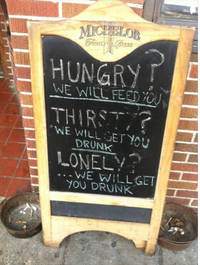 MICHELOB
HUNGRY?
WE WILL FEED YOU
THIRSTY?
WE WILL GET YOU
DRUNK
LONELY?
...WE WILL GET
YOU DRUNK